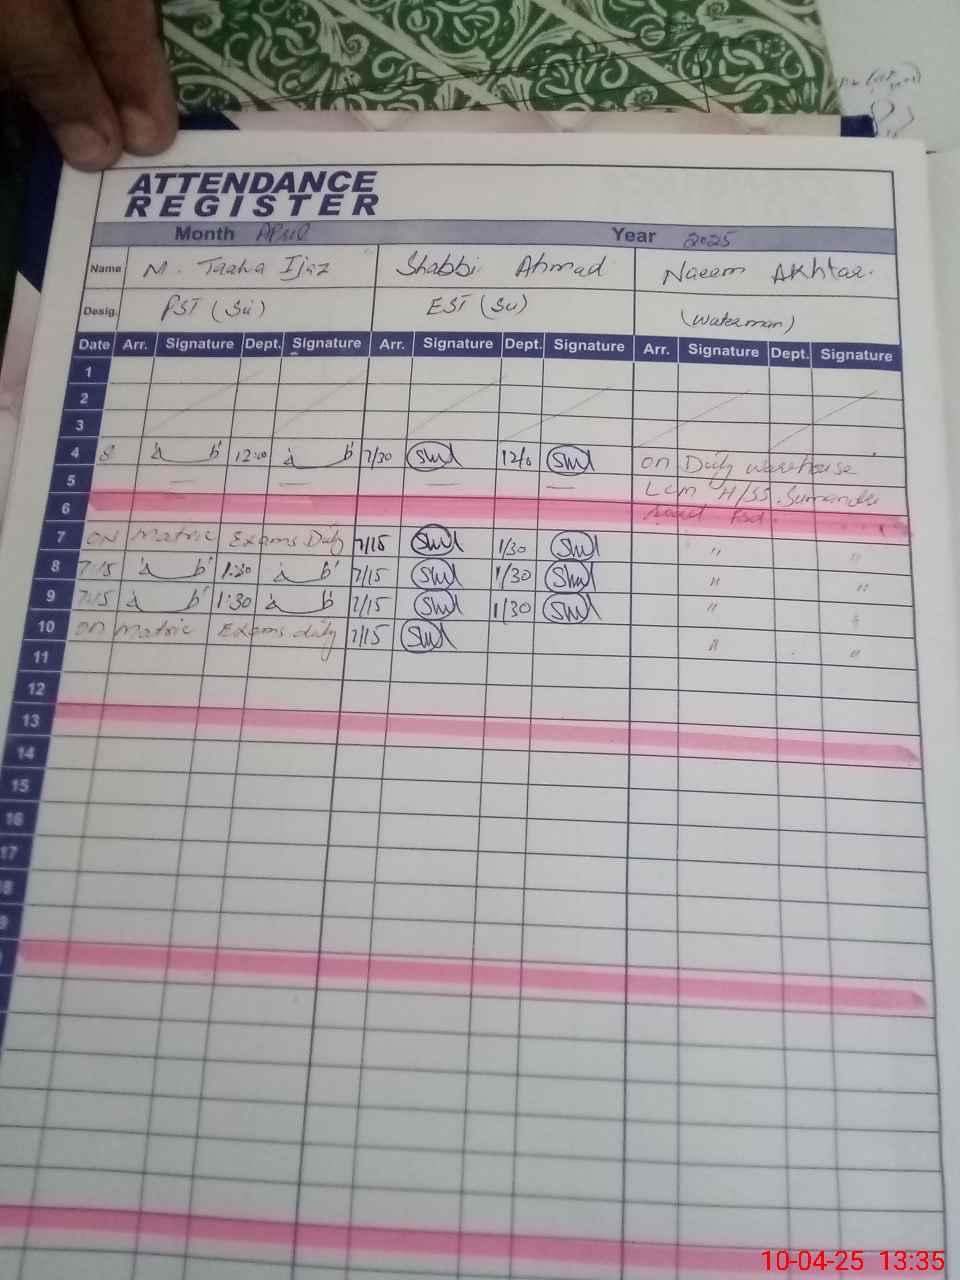 ATTENDANCE
REGISTER
Month April Year 2025
Name M. Taaha Ijaz Shabbi Ahmad Naeem Akhtar.
Desig. PST (Su) EST (Su) (Waterman)
Date Arr. Signature Dept. Signature Arr. Signature Dept. Signature Arr. Signature Dept. Signature
1
2
3
4 8 12:00 7/30 12/0 on Duty warehouse
5 — — — — Lcm H/SS. Sumandri
6 Road Fsd.
7 ON Matric Exams Duty 7/15 1/30 " "
8 7:15 1:30 7/15 1/30 " "
9 7:15 1:30 7/15 1/30 " "
10 on matric Exams duty 7/15 " "
11
12
13
14
15
16
17
10-04-25 13:35